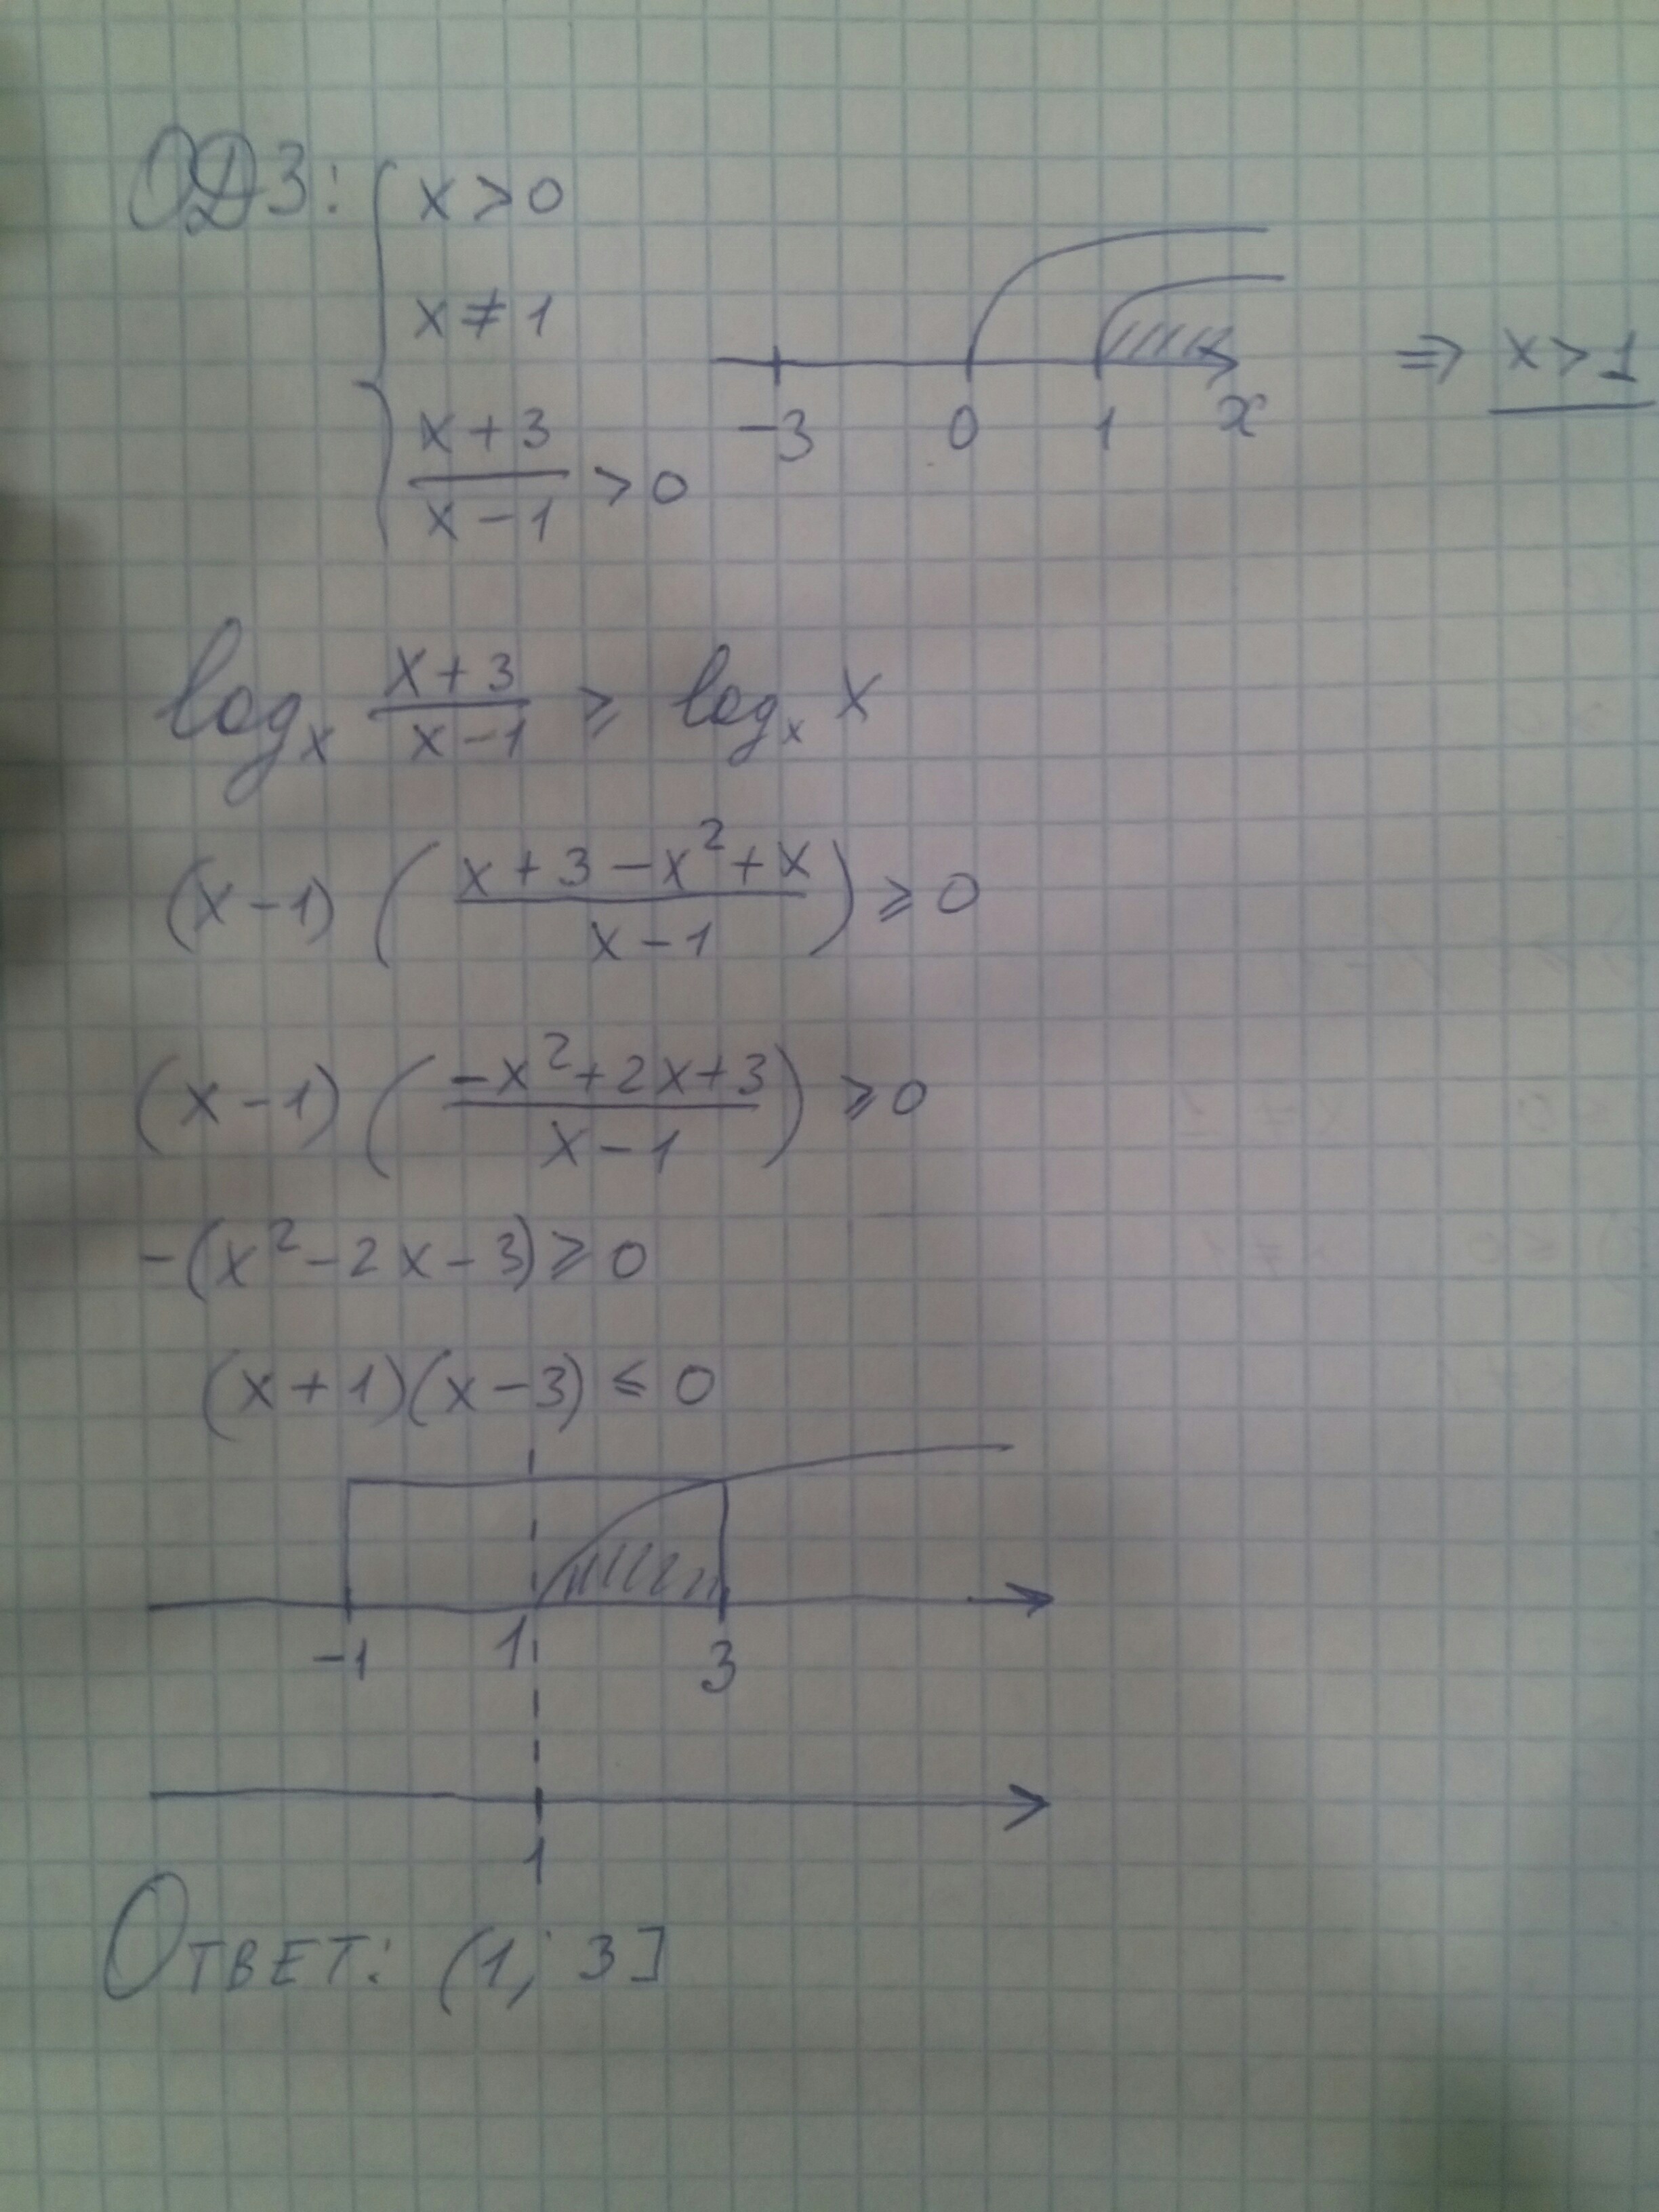 ОДЗ: { x > 0
x ≠ 1
(x + 3)/(x − 1) > 0
−3 0 1 x
⇒ x > 1
log_x (x + 3)/(x − 1) ⩾ log_x x
(x − 1) ((x + 3 − x² + x)/(x − 1)) ⩾ 0
(x − 1) ((−x² + 2x + 3)/(x − 1)) ⩾ 0
−(x² − 2x − 3) ⩾ 0
(x + 1)(x − 3) ⩽ 0
−1 1 3
1
Ответ: (1; 3]